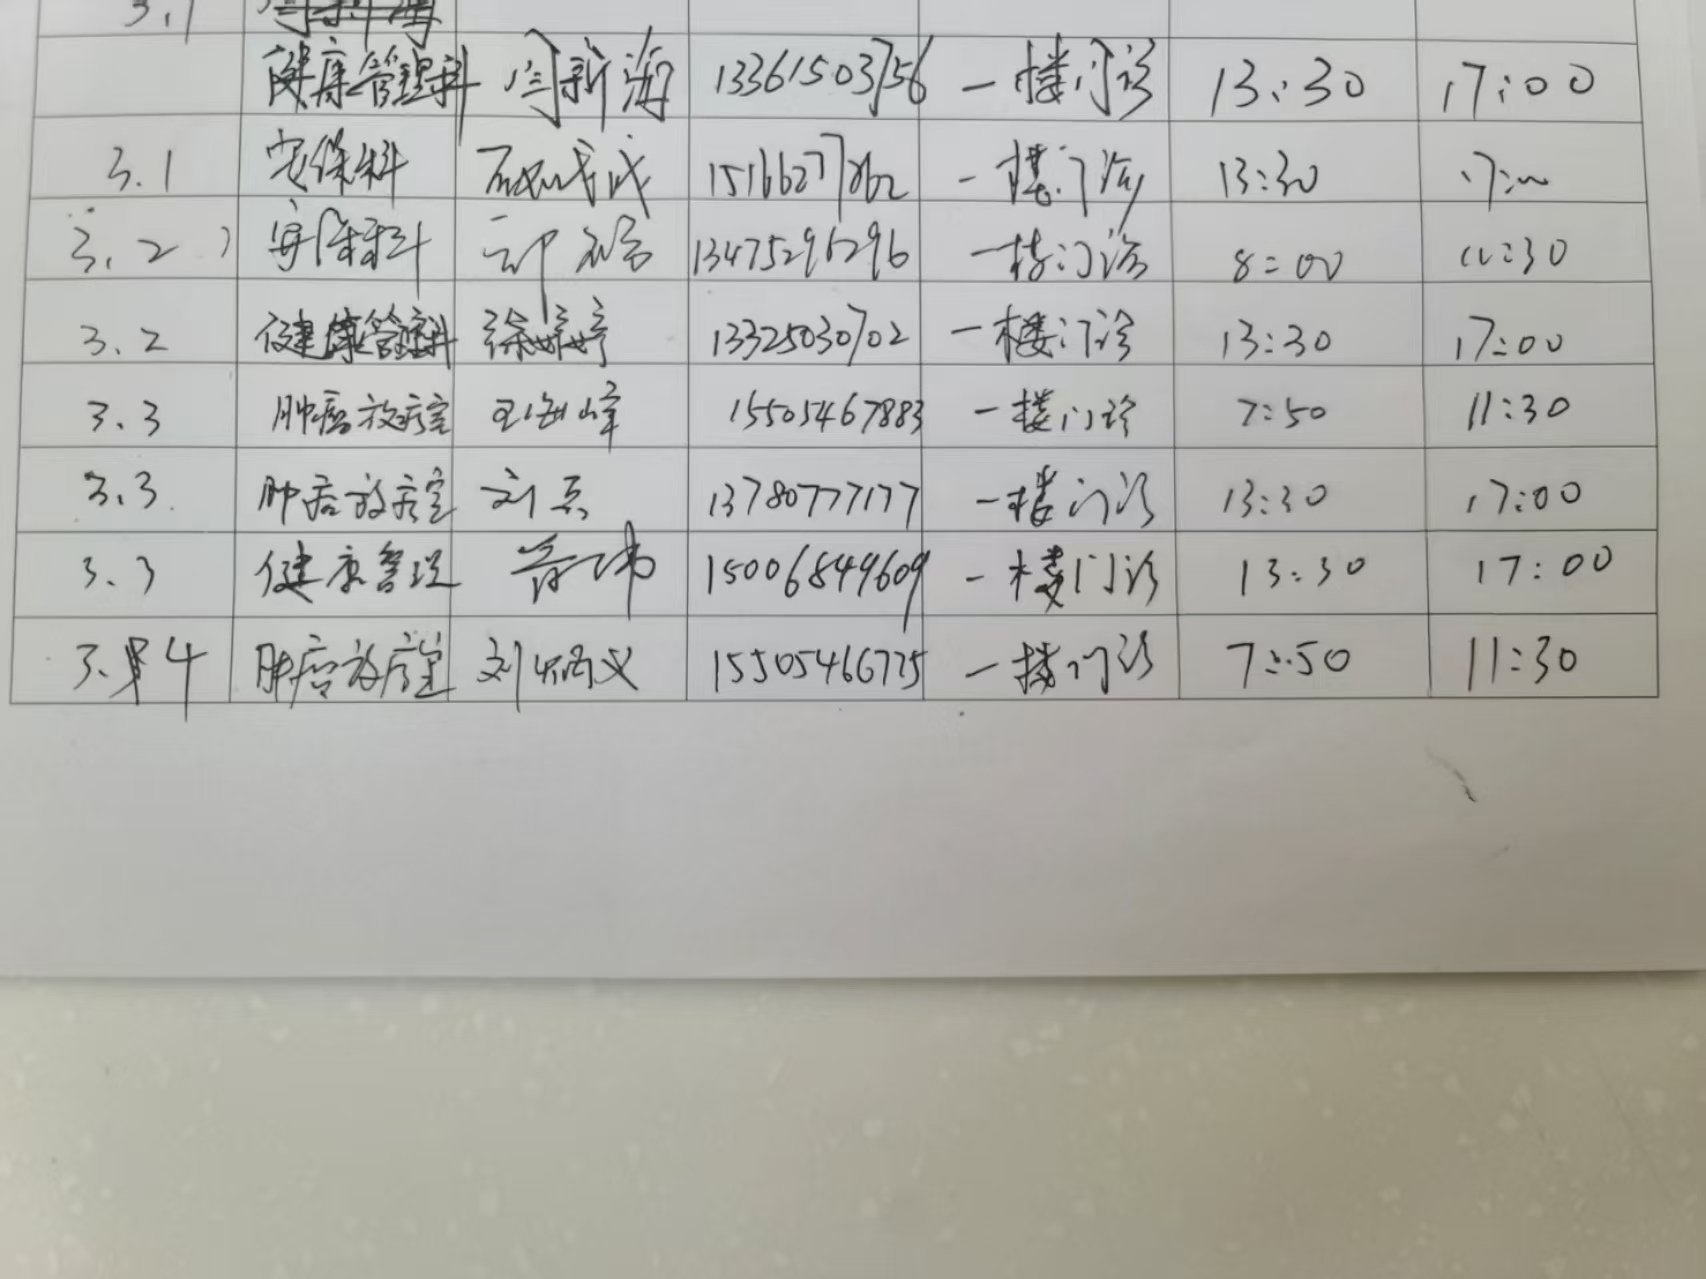 3.1
健康管理科 闫新海 13361503756 一楼门诊 13:30 17:00
3.1 安保科 一楼门诊 13:30 17:00
3.2 安保科 13475296296 一楼门诊 8:00 11:30
3.2 健康管理科 徐婷婷 13325030702 一楼门诊 13:30 17:00
3.3 肿瘤放疗室 王海峰 15505467883 一楼门诊 7:50 11:30
3.3 肿瘤放疗室 刘磊 13780777177 一楼门诊 13:30 17:00
3.3 健康管理 15006849609 一楼门诊 13:30 17:00
3.4 肿瘤放疗室 刘炳义 15505466775 一楼门诊 7:50 11:30